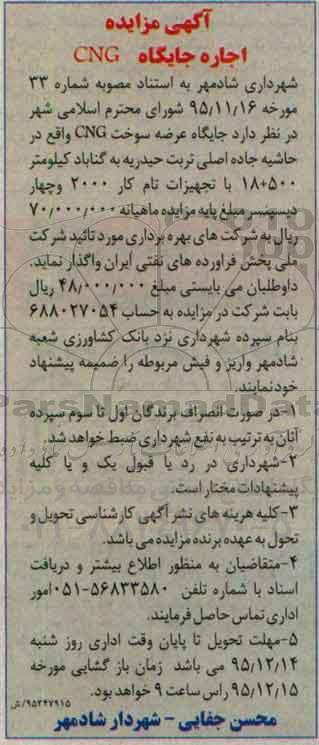 آگهی مزایده
اجاره جایگاه CNG
شهرداری شادمهر به استناد مصوبه شماره ۳۳
مورخه ۹۵/۱۱/۱۶ شورای محترم اسلامی شهر
در نظر دارد جایگاه عرضه سوخت CNG واقع در
حاشیه جاده اصلی تربت حیدریه به گناباد کیلومتر
۱۸+۵۰۰ با تجهیزات تام کار ۲۰۰۰ وچهار
دیسپنسر مبلغ پایه مزایده ماهیانه ۷۰/۰۰۰/۰۰۰
ریال به شرکت های بهره برداری مورد تائید شرکت
ملی پخش فراورده های نفتی ایران واگذار نماید.
داوطلبان می بایستی مبلغ ۴۸/۰۰۰/۰۰۰ ریال
بابت شرکت در مزایده به حساب ۶۸۸۰۲۷۰۵۴
بنام سپرده شهرداری نزد بانک کشاورزی شعبه
شادمهر واریز و فیش مربوطه را ضمیمه پیشنهاد
خود نمایند.
۱-در صورت انصراف برندگان اول تا سوم سپرده
آنان به ترتیب به نفع شهرداری ضبط خواهد شد.
۲-شهرداری در رد یا قبول یک و یا کلیه
پیشنهادات مختار است.
۳-کلیه هزینه های نشر آگهی کارشناسی تحویل و
تحول به عهده برنده مزایده می باشد.
۴-متقاضیان به منظور اطلاع بیشتر و دریافت
اسناد با شماره تلفن ۵۶۸۳۳۵۸۰-۰۵۱ امور
اداری تماس حاصل فرمایند.
۵-مهلت تحویل تا پایان وقت اداری روز شنبه
۹۵/۱۲/۱۴ می باشد زمان باز گشایی مورخه
۹۵/۱۲/۱۵ راس ساعت ۹ خواهد بود.
۹۵۲۴۷۹۱۵/ش
محسن جفایی - شهردار شادمهر
ParsNamadData